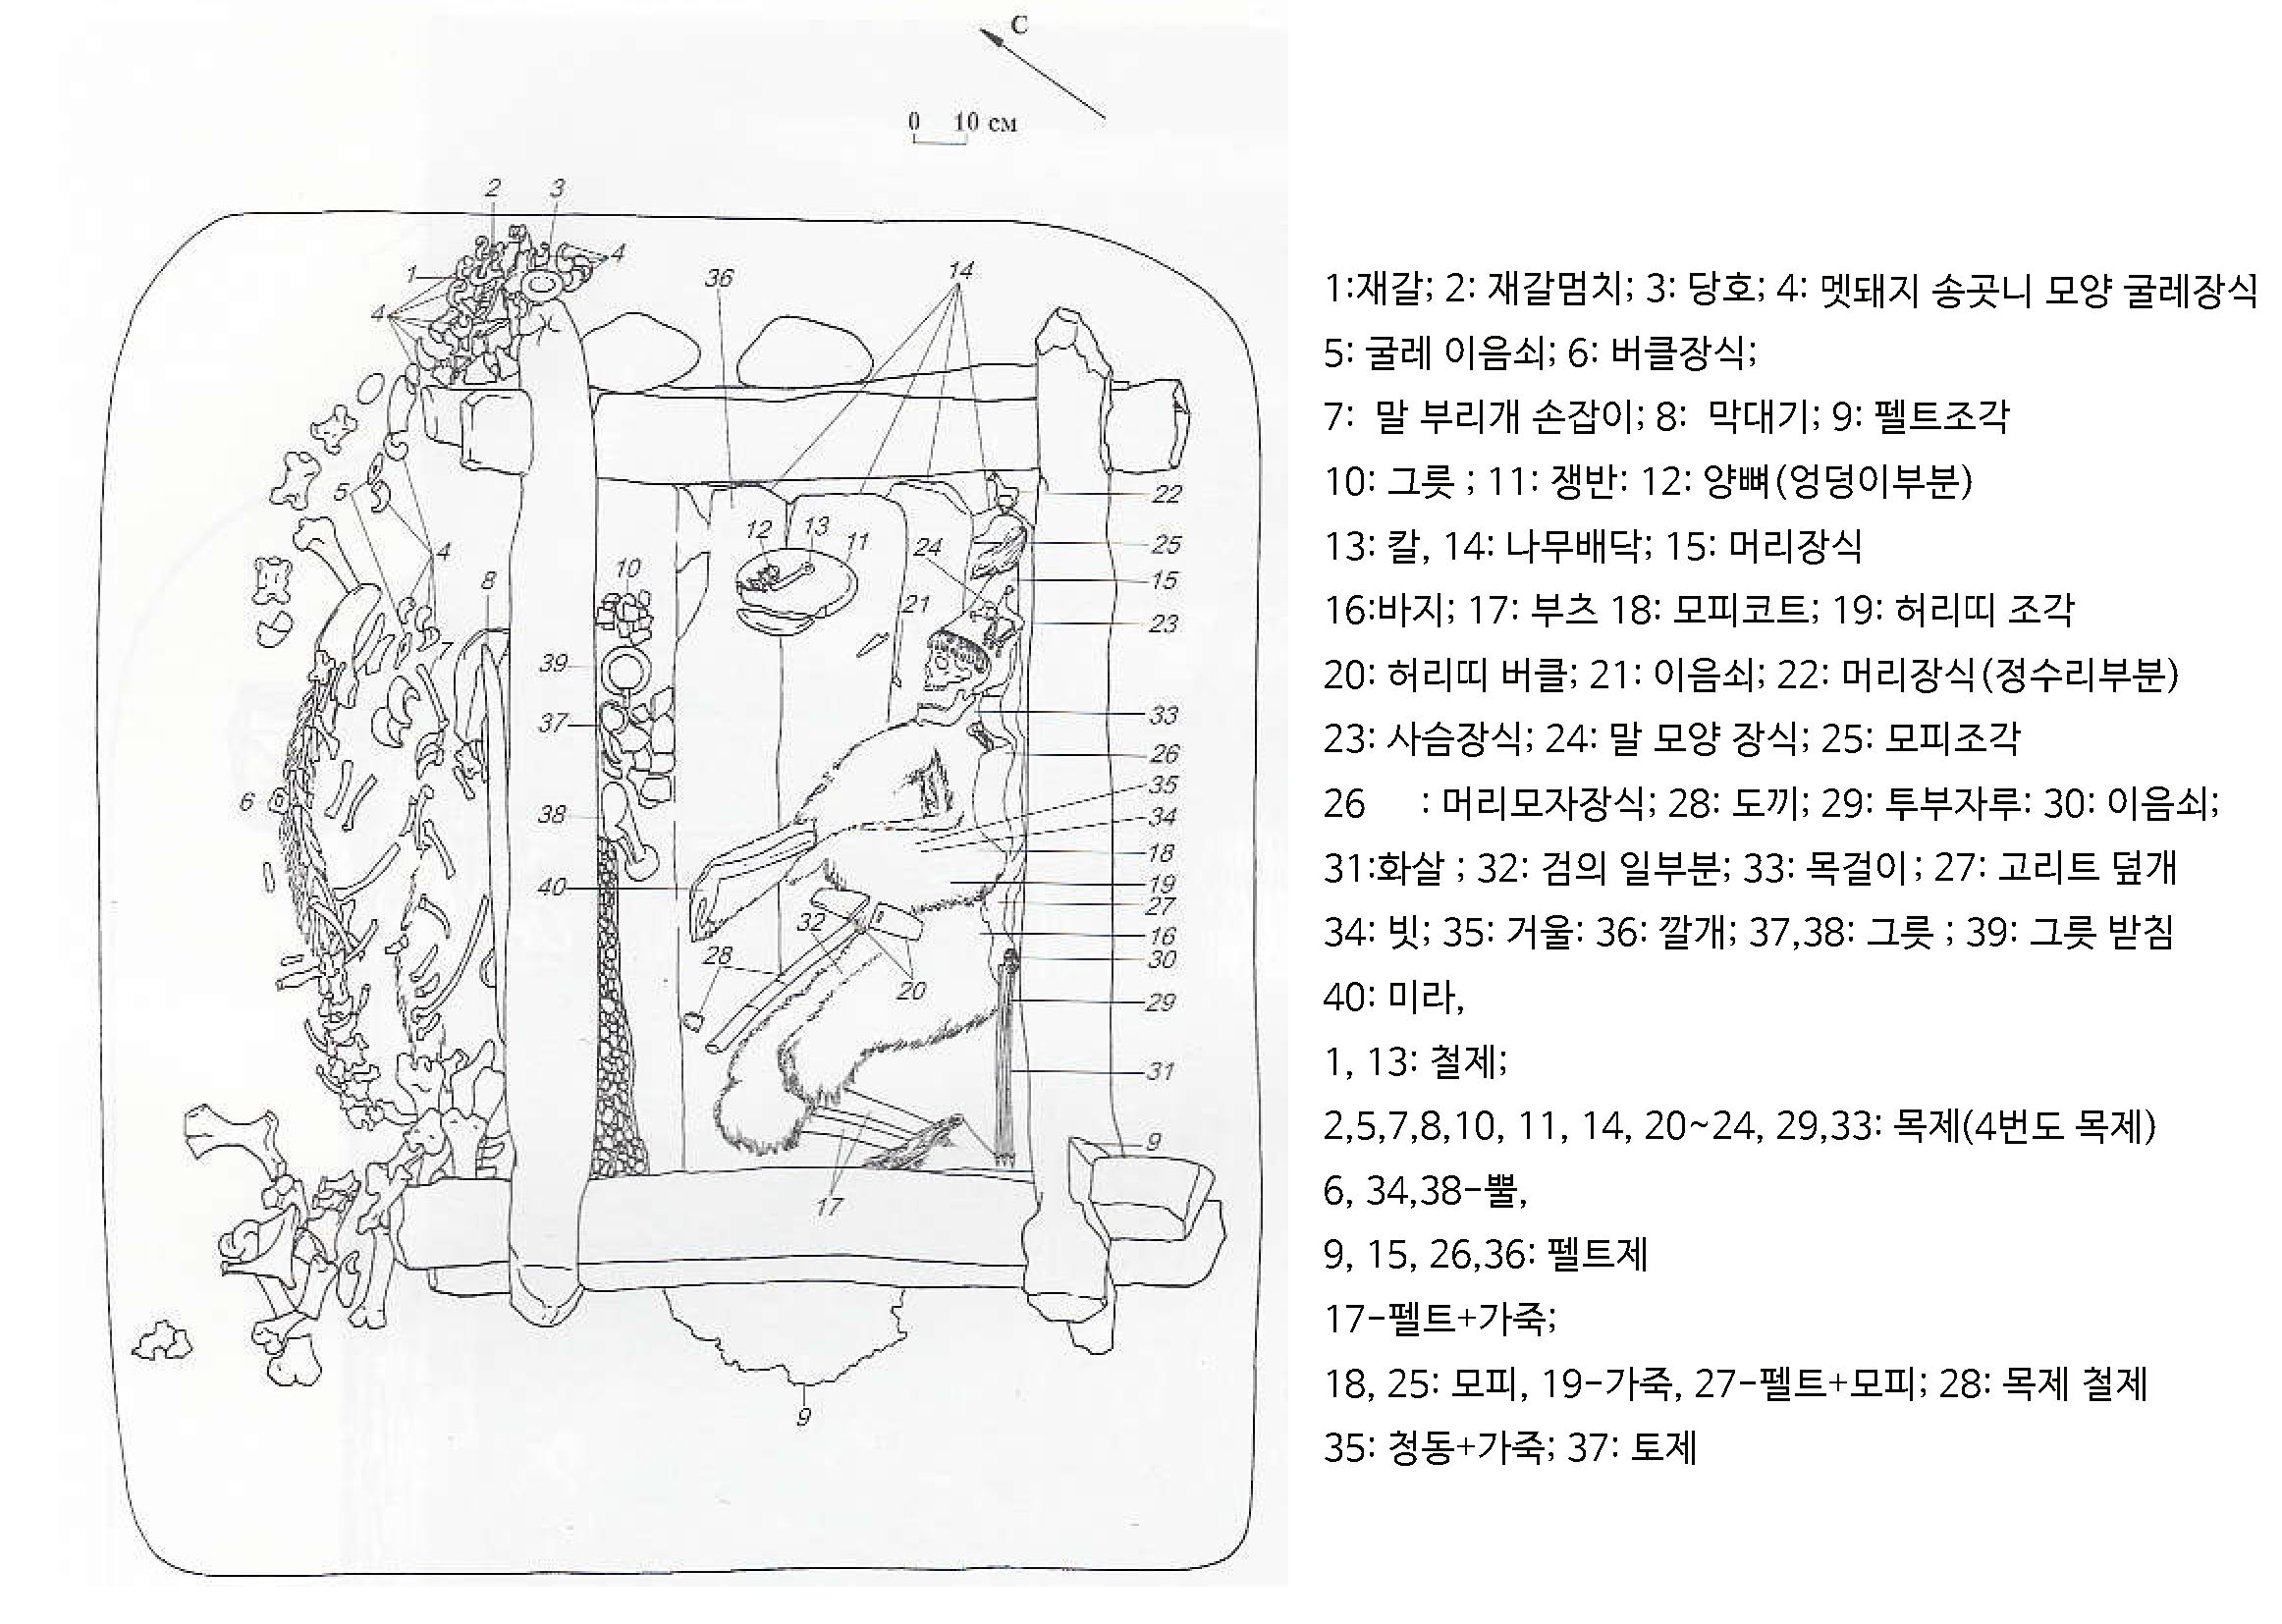 C
0 10 см
2 3
4
1
36
14
4
5
22
12 13 11
24
25
4
8
10
15
21
23
7
39
33
37
26
6
35
38
34
18
40
19
27
32
16
28
30
20
29
31
9
17
9
1:재갈; 2: 재갈멈치; 3: 당호; 4: 멧돼지 송곳니 모양 굴레장식
5: 굴레 이음쇠; 6: 버클장식;
7: 말 부리개 손잡이; 8: 막대기; 9: 펠트조각
10: 그릇 ; 11: 쟁반: 12: 양뼈(엉덩이부분)
13: 칼, 14: 나무배닥; 15: 머리장식
16:바지; 17: 부츠 18: 모피코트; 19: 허리띠 조각
20: 허리띠 버클; 21: 이음쇠; 22: 머리장식(정수리부분)
23: 사슴장식; 24: 말 모양 장식; 25: 모피조각
26 : 머리모자장식; 28: 도끼; 29: 투부자루: 30: 이음쇠;
31:화살 ; 32: 검의 일부분; 33: 목걸이; 27: 고리트 덮개
34: 빗; 35: 거울: 36: 깔개; 37,38: 그릇 ; 39: 그릇 받침
40: 미라,
1, 13: 철제;
2,5,7,8,10, 11, 14, 20~24, 29,33: 목제(4번도 목제)
6, 34,38-뿔,
9, 15, 26,36: 펠트제
17-펠트+가죽;
18, 25: 모피, 19-가죽, 27-펠트+모피; 28: 목제 철제
35: 청동+가죽; 37: 토제